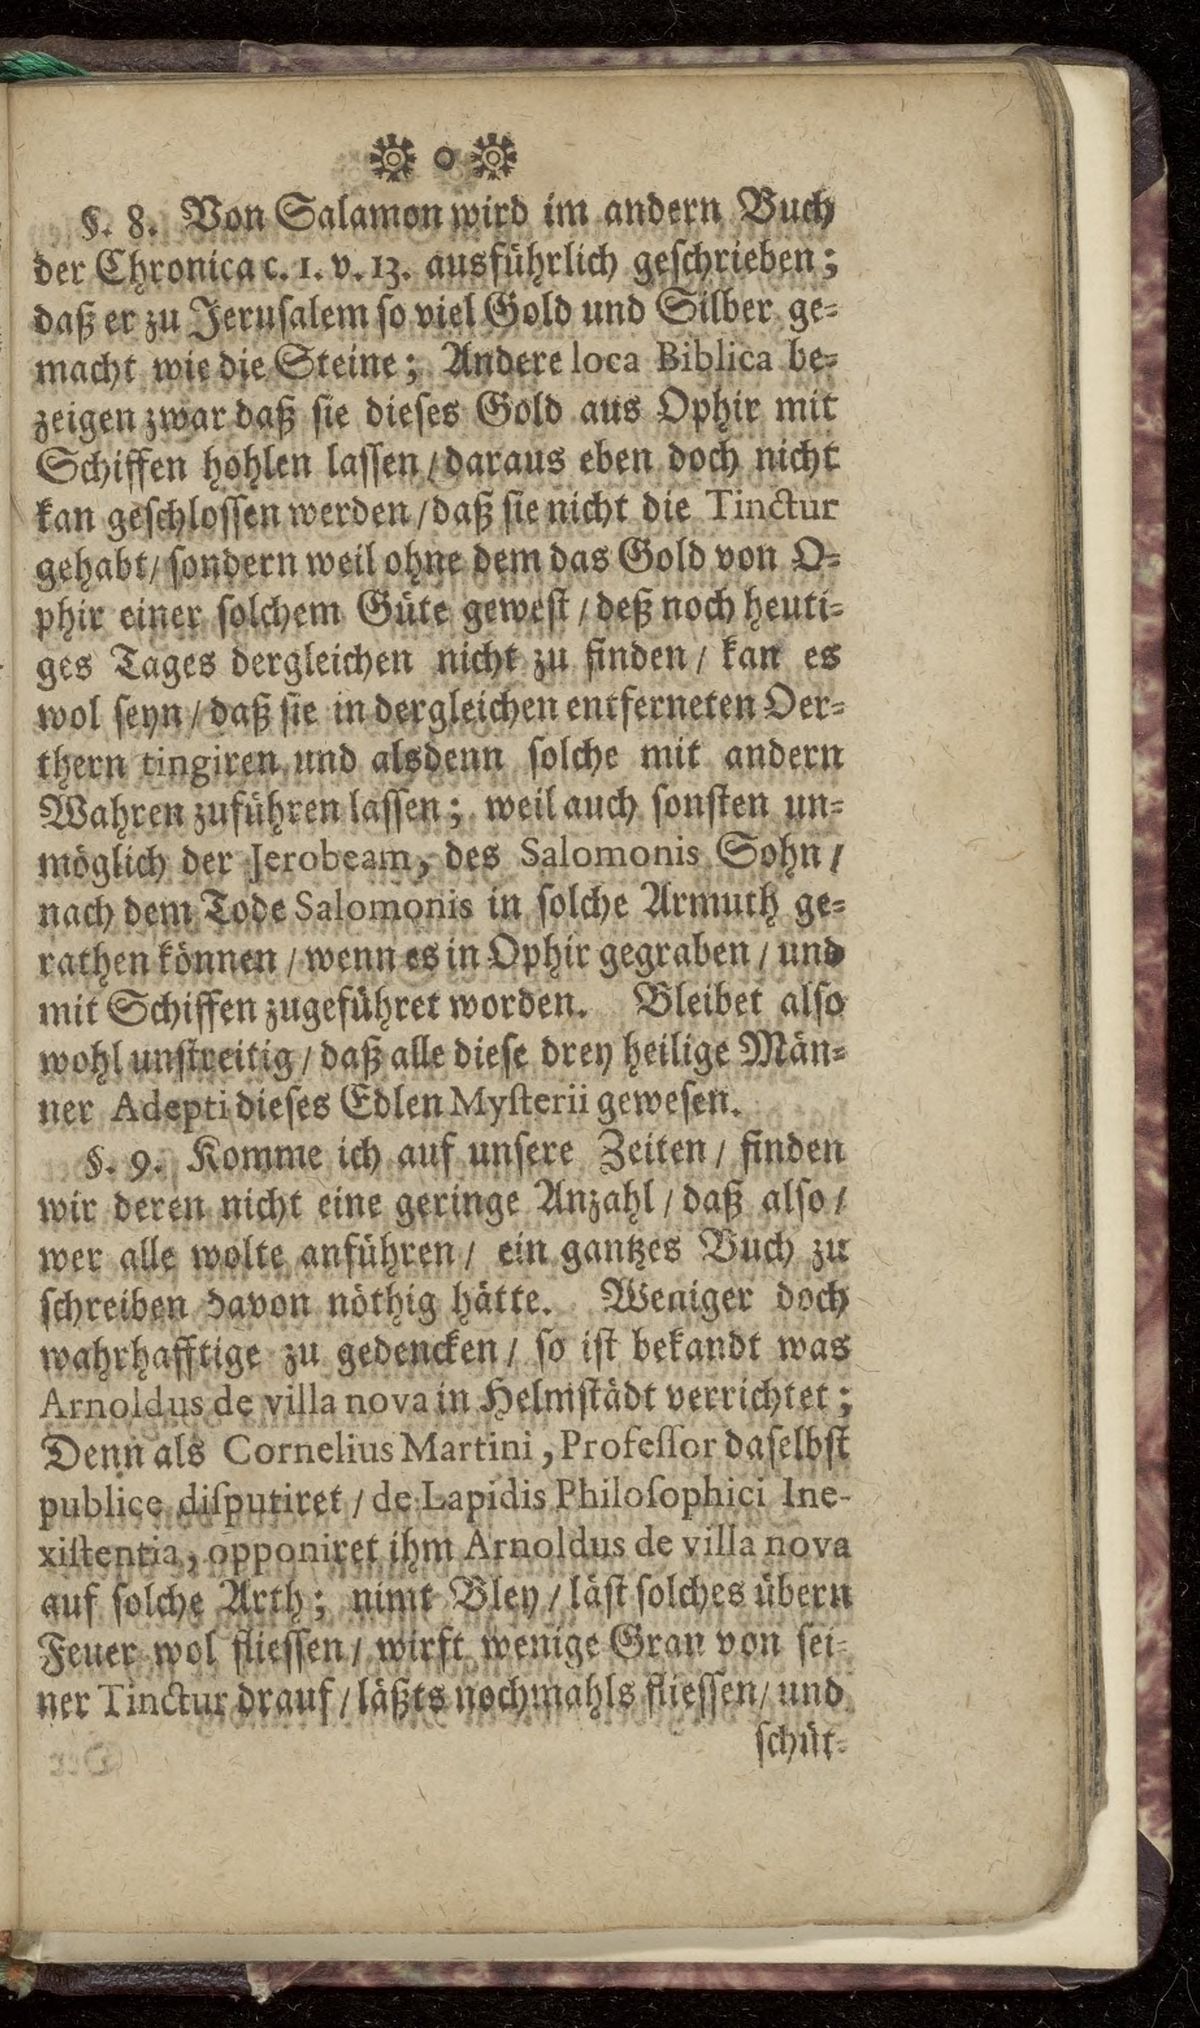 §. 8. Von Salamon wird im andern Buch
der Chronica c. 1. v. 13. ausführlich geschrieben;
daß er zu Jerusalem so viel Gold und Silber ge-
macht wie die Steine; Andere loca Biblica be-
zeigen zwar daß sie dieses Gold aus Ophir mit
Schiffen hohlen lassen / daraus eben doch nicht
kan geschlossen werden / daß sie nicht die Tinctur
gehabt / sondern weil ohne dem das Gold von O-
phir einer solchem Güte gewest / deß noch heuti-
ges Tages dergleichen nicht zu finden / kan es
wol seyn / daß sie in dergleichen entferneten Oer-
thern tingiren und alsdenn solche mit andern
Wahren zuführen lassen; weil auch sonsten un-
möglich der Jerobeam, des Salomonis Sohn /
nach dem Tode Salomonis in solche Armuth ge-
rathen können / wenn es in Ophir gegraben / und
mit Schiffen zugeführet worden. Bleibet also
wohl unstreitig / daß alle diese drey heilige Män-
ner Adepti dieses Edlen Mysterii gewesen.
§. 9. Komme ich auf unsere Zeiten / finden
wir deren nicht eine geringe Anzahl / daß also /
wer alle wolte anführen / ein gantzes Buch zu
schreiben davon nöthig hätte. Weniger doch
wahrhafftige zu gedencken / so ist bekandt was
Arnoldus de villa nova in Helmstädt verrichtet;
Denn als Cornelius Martini, Professor daselbst
publice disputiret / de Lapidis Philosophici Ine-
xistentia, opponiret ihm Arnoldus de villa nova
auf solche Arth; nimt Bley / läst solches übern
Feuer wol fliessen / wirft wenige Gran von sei-
ner Tinctur drauf / läßts nochmahls fliessen / und
schüt-